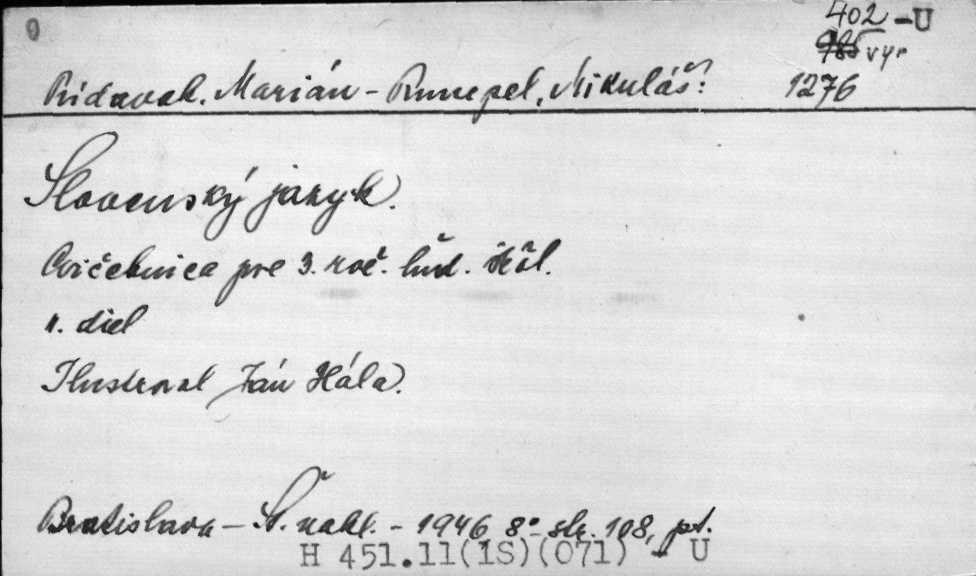 0
402 -U
985 vyr
Ridavak. Marián - Rumepel, Mikuláš:
1276
Slovenský jazyk.
Cvičebnica pre 3. roč. ľud. škôl.
1. diel
Ilustroval Ján Hála.
Bratislava - Št. nakl. - 1946, 8° - str. 108, pt.
H 451.11(1S)(071) - U